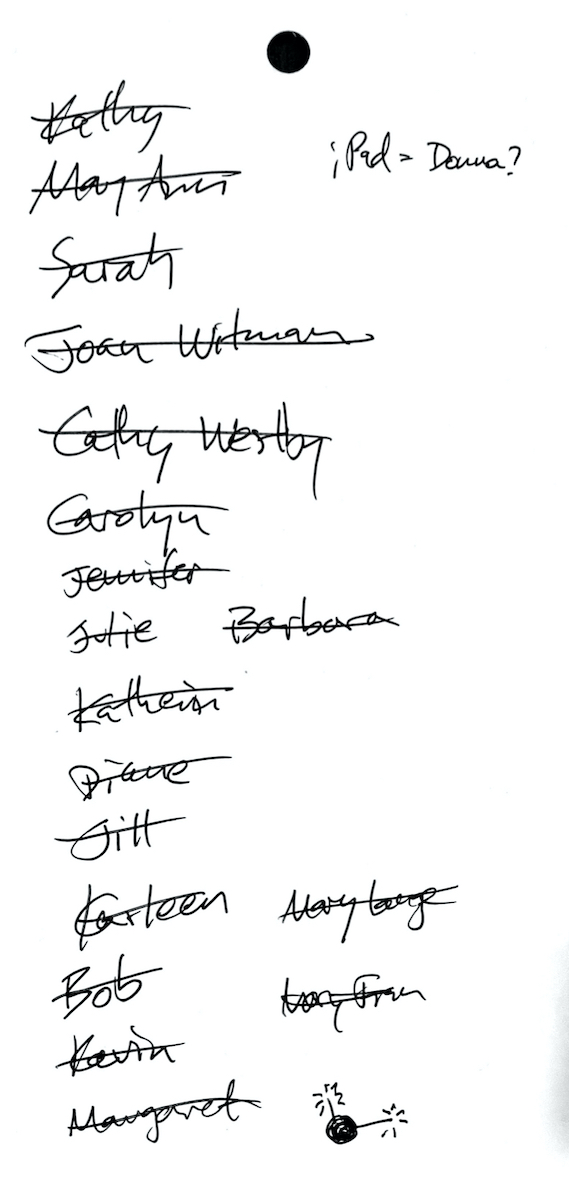 Kathy
iPad = Donna?
Mary Ann
Sarah
Joan Witman
Cathy Westby
Carolyn
Jennifer
Julie Barbara
Katherin
Diane
Jill
Karleen Mary Lange
Bob Mary Fran
Kevin
Margaret